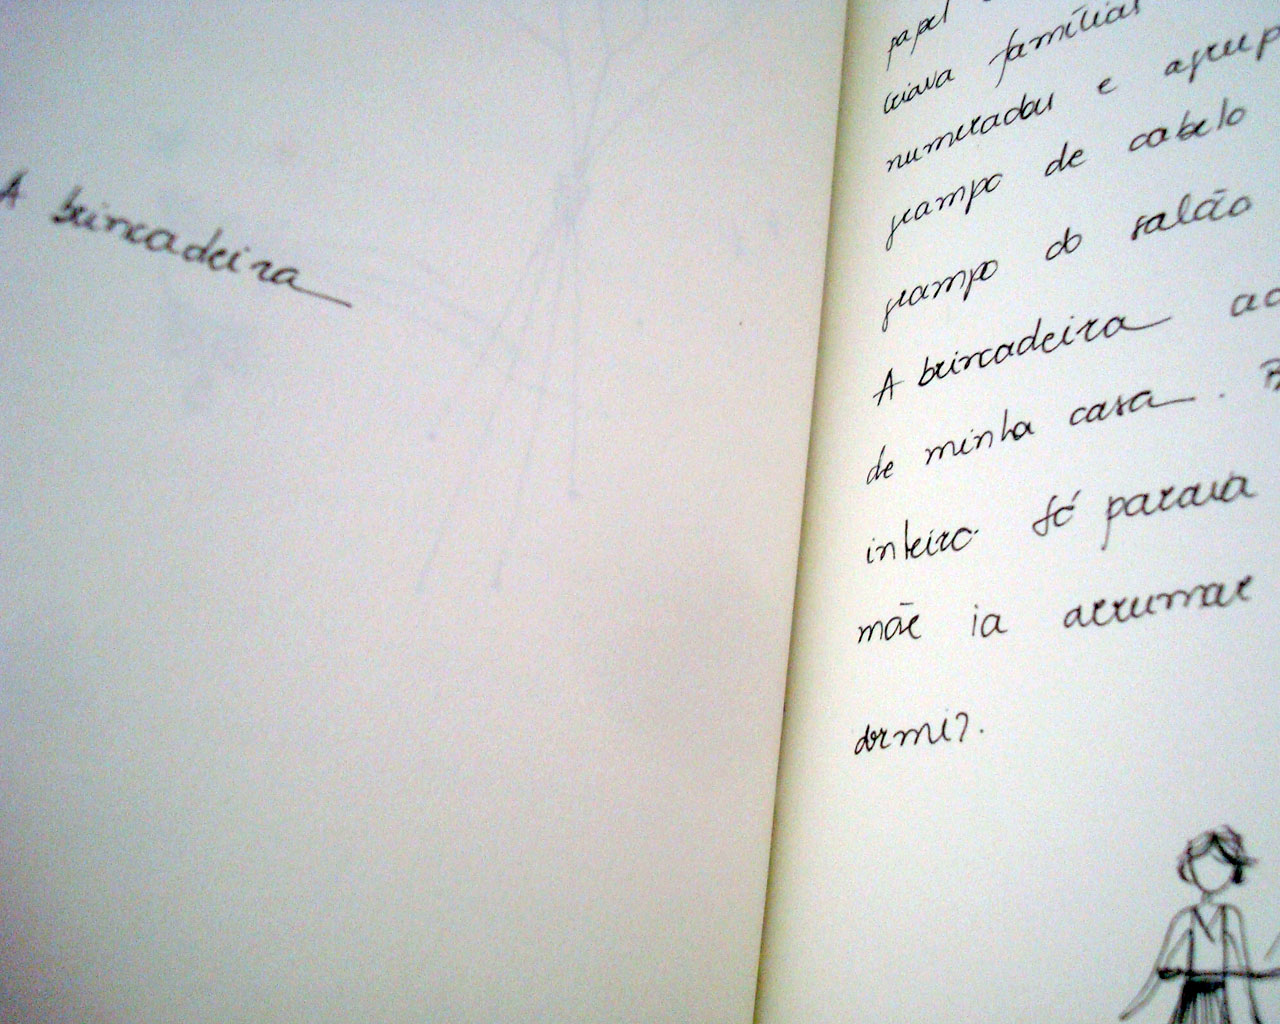 A brincadeira
papel
criava famílias
numerados e agrup
grampo de cabelo
grampo do salão
A brincadeira ac
de minha casa.
inteiro. Só parava
mãe ia arrumar
dormir.